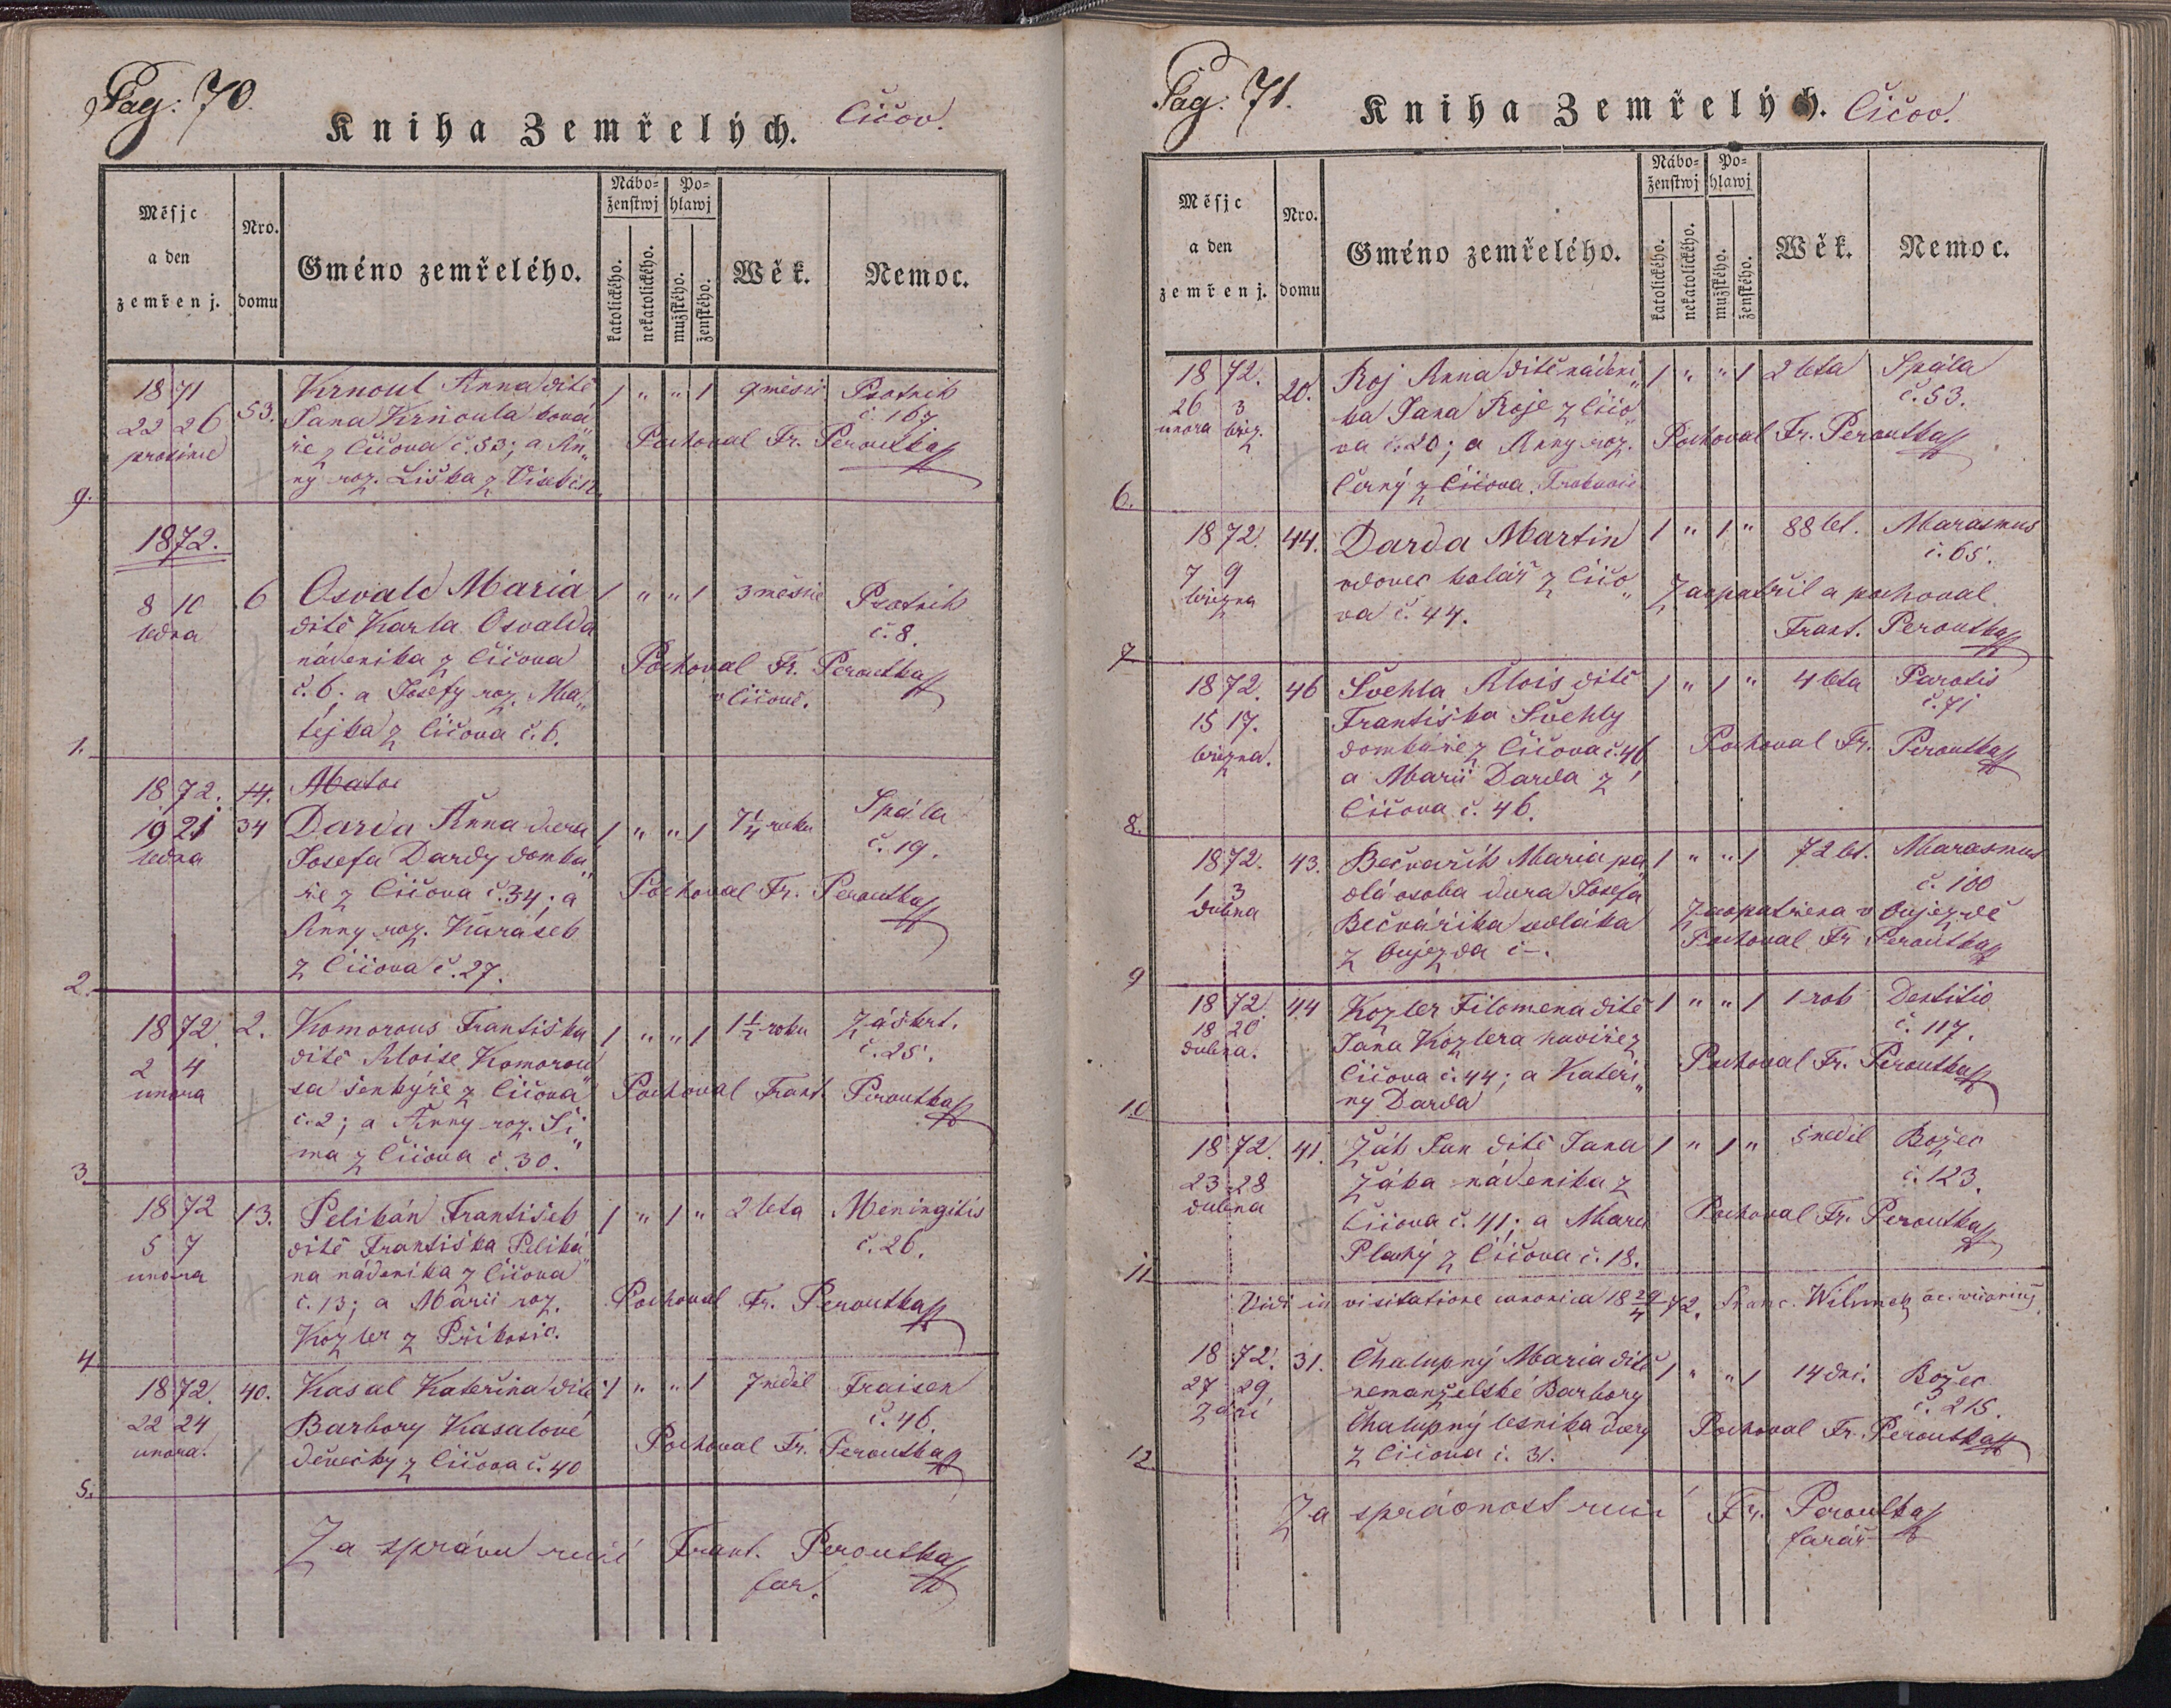 Pag: 70.
Kniha Zemřelých.
Čičov.
Měsjc a den zemřenj.
Nro. domu
Gméno zemřelého.
Nábo=ženstwj
katolického.
nekatolického.
Po=hlawj
mužského.
ženského.
Wěk.
Nemoc.
1871 53. Krnoul Anna dítě 1 " " 1 9 měsíc Psotník
22 26 Jana Krnoula ková č. 167
prosince ře z Čičova č. 53; a An„ Pochoval Fr. Peroutka
ny roz. Liška z
9.
1872.
6 Osvald Maria 1 " " 1 3 měsíce Psotník
8 10 dítě Karla Osvalda č. 8.
ledna nádeníka z Čičova Pochoval Fr. Peroutka
č. 6; a Josefy roz. Ma„ v Čičově.
tějka z Čičova č. 6.
1.
1872. 14. Matoe
19 21 34 Darda Anna dcera 1 " " 1 7 1/4 roku Spála
ledna Josefa Dardy domka„ č. 19.
ře z Čičova č. 34; a Pochoval Fr. Peroutka
Anny roz. Karásek
z Čičova č. 27.
2.
1872. 2. Komorous Františka 1 " " 1 1 1/2 roku Záškrt.
2 4 dítě Aloise Komorou„ č. 25.
února sa šenkýře z Čičova Pochoval Frant. Peroutka
č. 2; a Anny roz. Ší„
ma z Čičova č. 30.
3.
1872 13. Pelikán František 1 " 1 " 2 leta Meningitis
5 7 dítě Františka Peliká„ č. 26.
února na nádeníka z Čičova
č. 13; a Marii roz. Pochoval Fr. Peroutka
Kozler z Přikosic.
4.
1872. 40. Kasal Kateřina dítě 1 " " 1 7 neděl Fraisen
22 24 Barbory Kasalové č. 46.
února. děvečky z Čičova č. 40 Pochoval Fr. Peroutka
5.
Za správu ručí Frant. Peroutka
far.
Pag: 71.
Kniha Zemřelých.
Čičov.
Měsjc a den zemřenj.
Nro. domu
Gméno zemřelého.
Nábo=ženstwj
katolického.
nekatolického.
Po=hlawj
mužského.
ženského.
Wěk.
Nemoc.
1872. 20. Roj Anna dítě nádení„ 1 " " 1 2 leta Spála
26 3 ka Jana Roje z Čičo č. 53.
února břez. va č. 20; a Anny roz. Pochoval Fr. Peroutka
Černý z Čičova.
6.
1872. 44. Darda Martin 1 " 1 " 88 let. Marasmus
7 9 vdovec kolář z Čičo„ č. 65.
března va č. 44. Zaopatřil a pochoval
Frant. Peroutka
7
1872. 46 Švehla Alois dítě 1 " 1 " 4 leta Parotis
15 17. Františka Švehly č. 71
března. domkáře z Čičova č. 46 Pochoval Fr. Peroutka
a Marii Darda z
Čičova č. 46.
8.
1872. 43. Bečvařík Maria pa„ 1 " " 1 72 let. Marasmus
1 3 dlá osoba dcera Josefa č. 100
dubna Bečváříka sedláka Zaopatřena v Oujezdě
z Oujezda č –. Pochoval Fr. Peroutka
9
1872. 44 Kozler Filomena dítě 1 " " 1 1 rok Dentitio
18 20 Jana Kozlera kováře z č. 117.
dubna. Čičova č. 44; a Kateři„ Pochoval Fr. Peroutka
ny Darda
10
1872. 41. Žák Jan dítě Jana 1 " 1 " 5 neděl Božec
23 28 Žáka nádeníka z č. 123.
dubna Čičova č. 41; a Marii Pochoval Fr. Peroutka
Plachý z Čičova č. 18.
11
Vidi in visitatione canonica 18 29/4 72. Franc. Wilimek
1872. 31. Chalupný Maria dítě 1 " " 1 14 dní. Božec
27 29 nemanželské Barbory č. 215.
Září Chalupný lesníka dcery Pochoval Fr. Peroutka
z Čičova č. 31.
12
Za správnost ručí Fr. Peroutka
farář